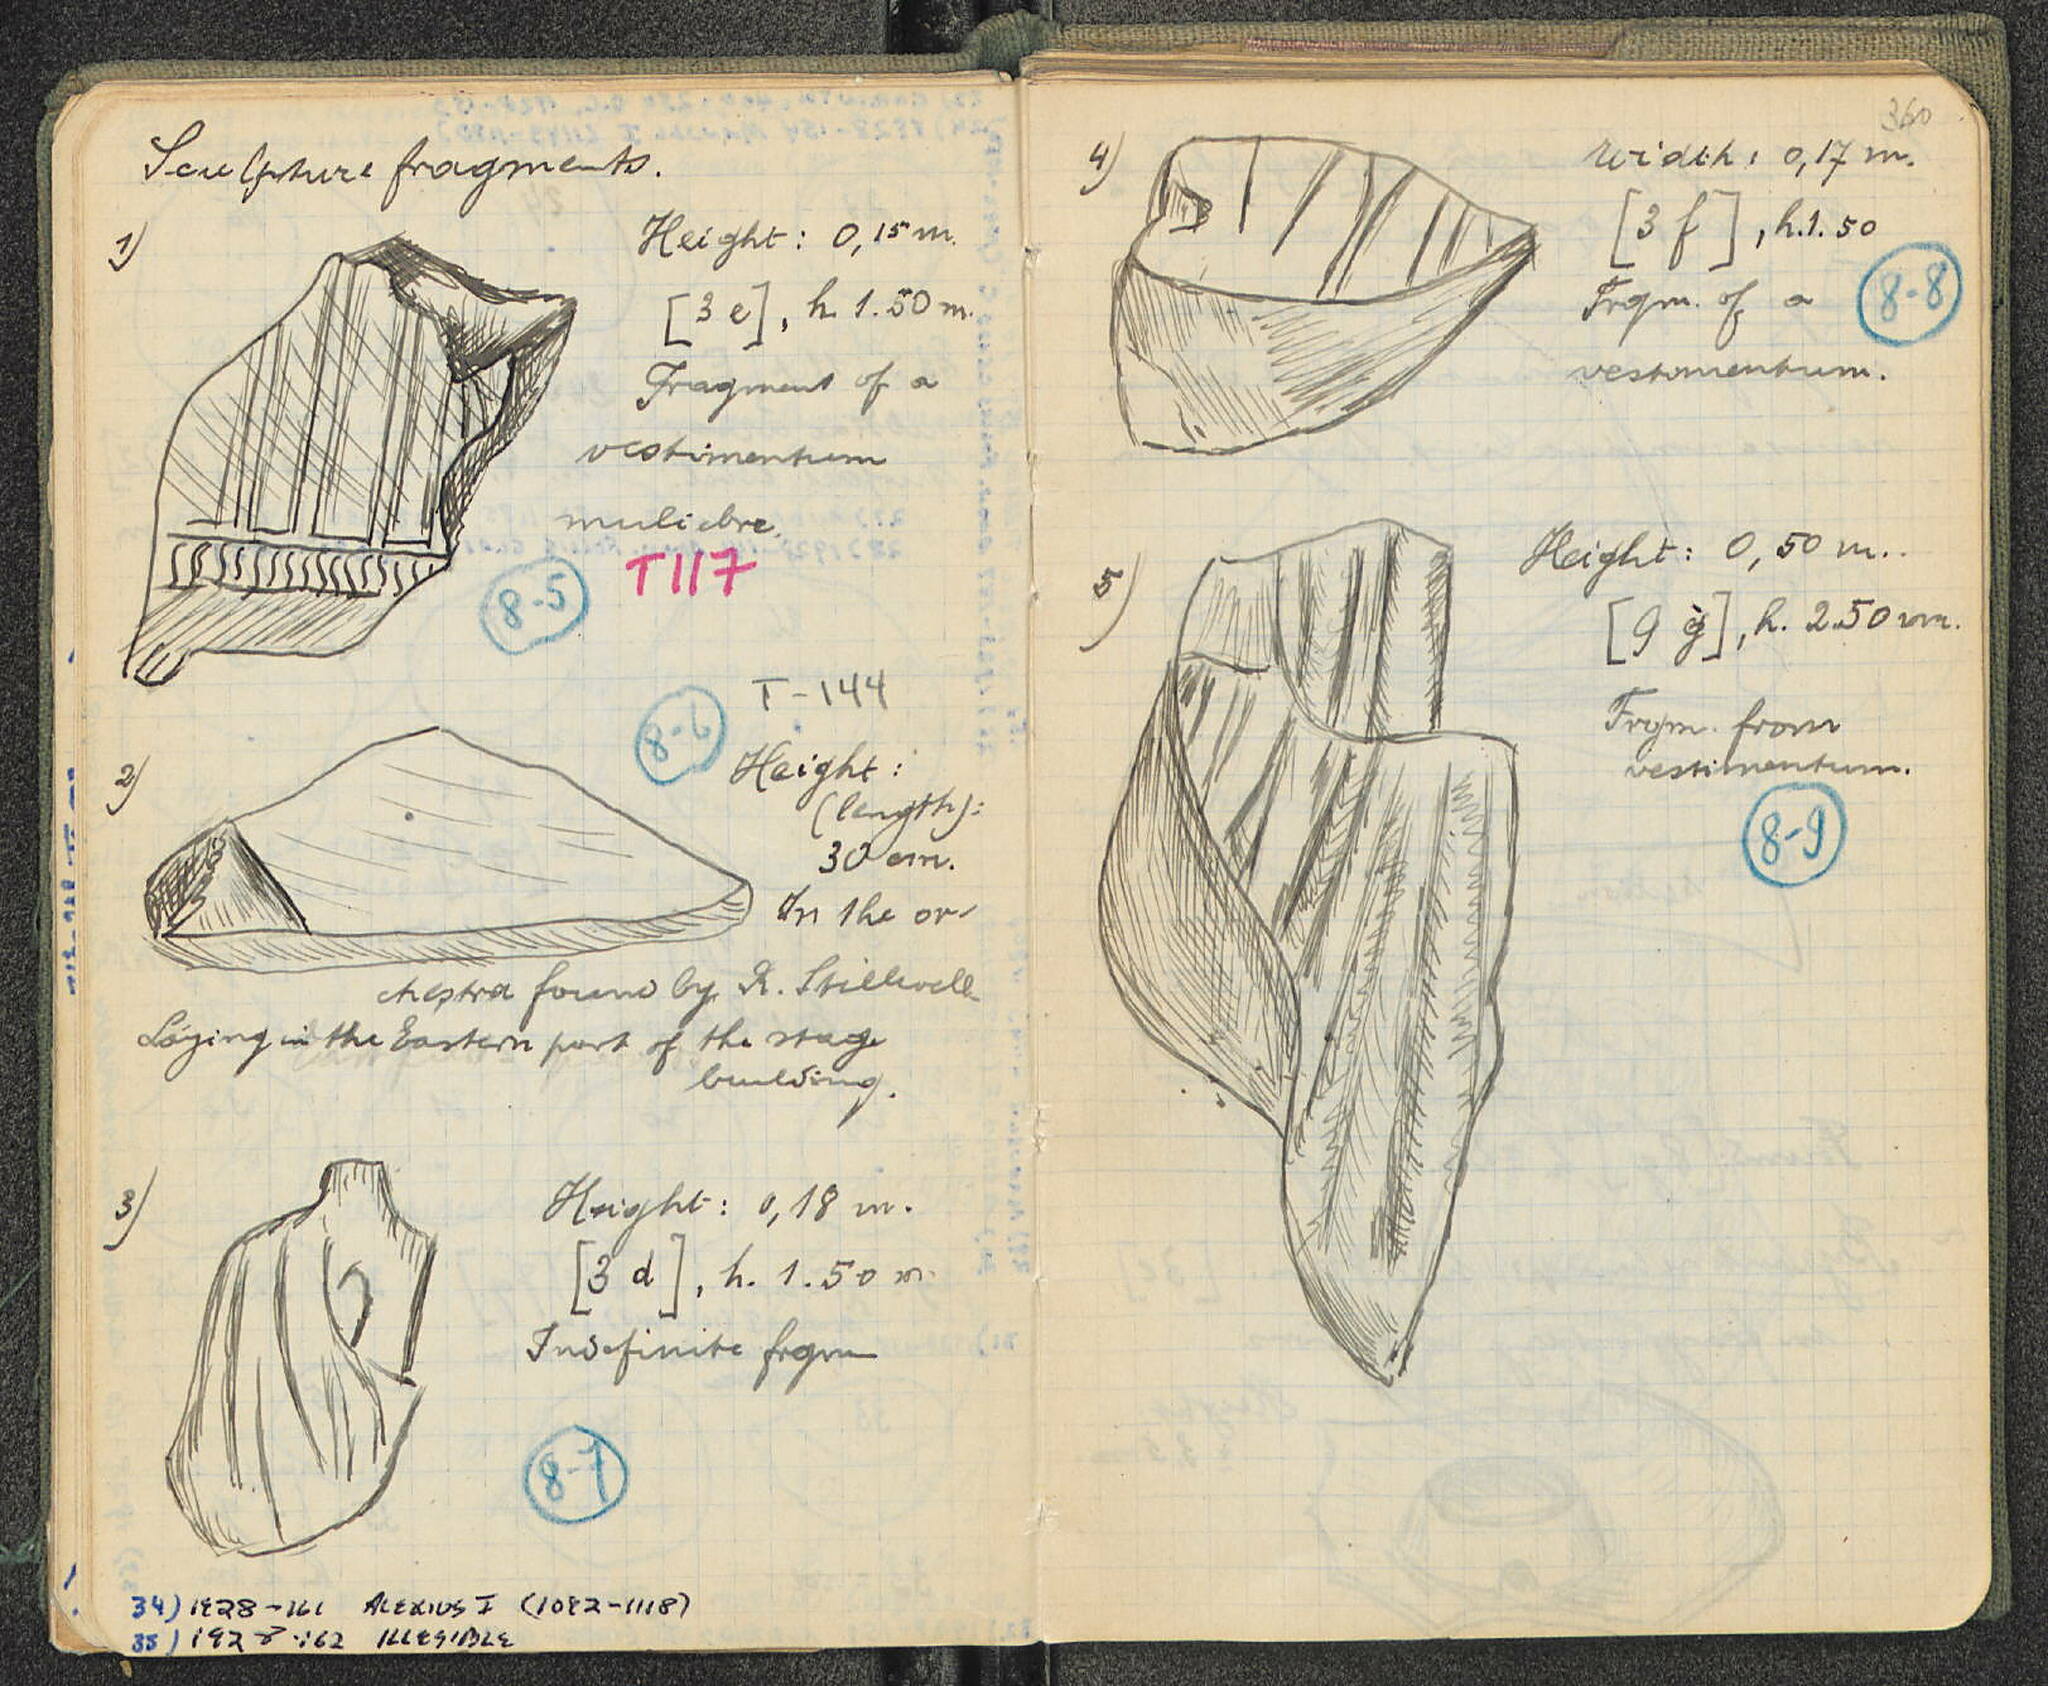 Sculpture fragments.
1)
Height: 0,15 m.
[3 e], h. 1.50 m.
Fragment of a
vestimentum
muliebre.
T117
8-5
T-144
8-6
2)
Height:
(length):
30 cm.
In the or-
chestra found by R. Stillwell
Laying in the Eastern part of the stage
building.
3)
Height: 0,18 m.
[3 d], h. 1.50 m.
Indefinite frgm
8-7
34) 1928-161 ALEXIUS I (1082-1118)
35) 1928-162 ILLEGIBLE
360
4)
Width: 0,17 m.
[3 f], h. 1.50
Frgm. of a
8-8
vestimentum.
5)
Height: 0,50 m.
[9 g], h. 2.50 m.
Frgm. from
vestimentum.
8-9